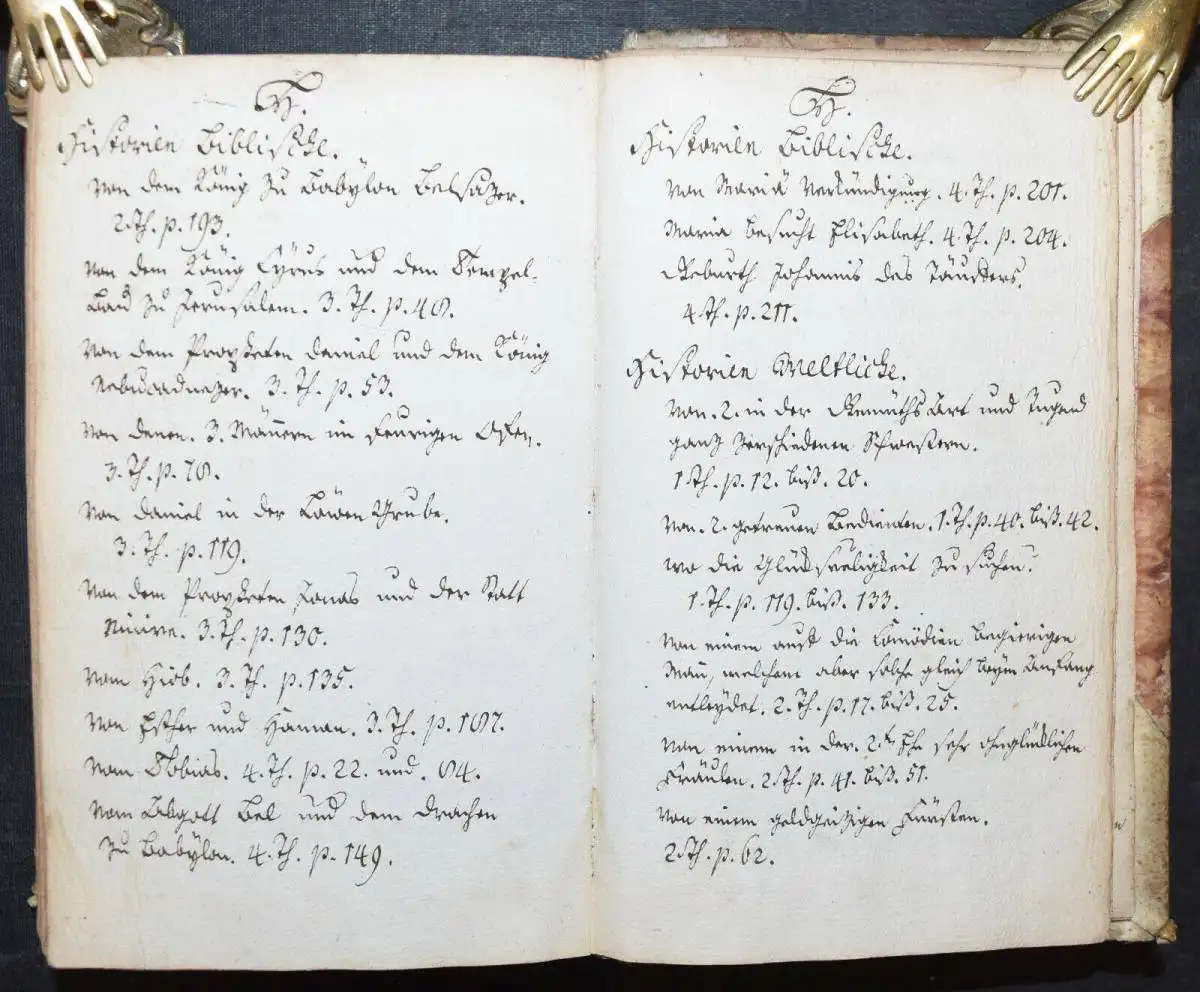 H.
Historien Biblische.
Von dem König zu Babÿlon Belsazer.
2. Th. p. 193.
Von dem König Cÿrus und dem Tempel-
Bau zu Jerusalem. 3. Th. p. 48.
Von dem Propheten Daniel und dem König
Nebucadnezer. 3. Th. p. 53.
Von denen. 3. Männern im feurigen Ofen.
3. Th. p. 78.
Von Daniel in der Löwen Grube.
3. Th. p. 119.
Von dem Propheten Jonas und der Statt
Ninive. 3. Th. p. 130.
Vom Hiob. 3. Th. p. 135.
Von Esther und Haman. 3. Th. p. 187.
Vom Tobias. 4. Th. p. 22. und. 84.
Vom Abgott Bel und dem Drachen
zu Babÿlon. 4. Th. p. 149.
H.
Historien Biblische.
Von Mariä Verkündigung. 4. Th. p. 201.
Maria besucht Elisabeth. 4. Th. p. 204.
Geburth Johannis des Täuffers.
4. Th. p. 211.
Historien Weltliche.
Von. 2. in der Gemüths Art und Tugend
ganz verschiedenen Schwestern.
1. Th. p. 12. biß. 20.
Von. 2. getreuen Bedienten. 1. Th. p. 40. biß. 42.
Wo die Glückseeligkeit zu suchen?
1. Th. p. 119. biß. 133.
Von einem auff die Comödien begierigen
Man, welchem aber solche gleich beÿm Anfang
entleÿdet. 2. Th. p. 17. biß. 25.
Von einem in der. 2.ten Ehe sehr ohnglücklichen
Fräulen. 2. Th. p. 41. biß. 51.
Von einem geldgeizigen Fürsten.
2. Th. p. 62.